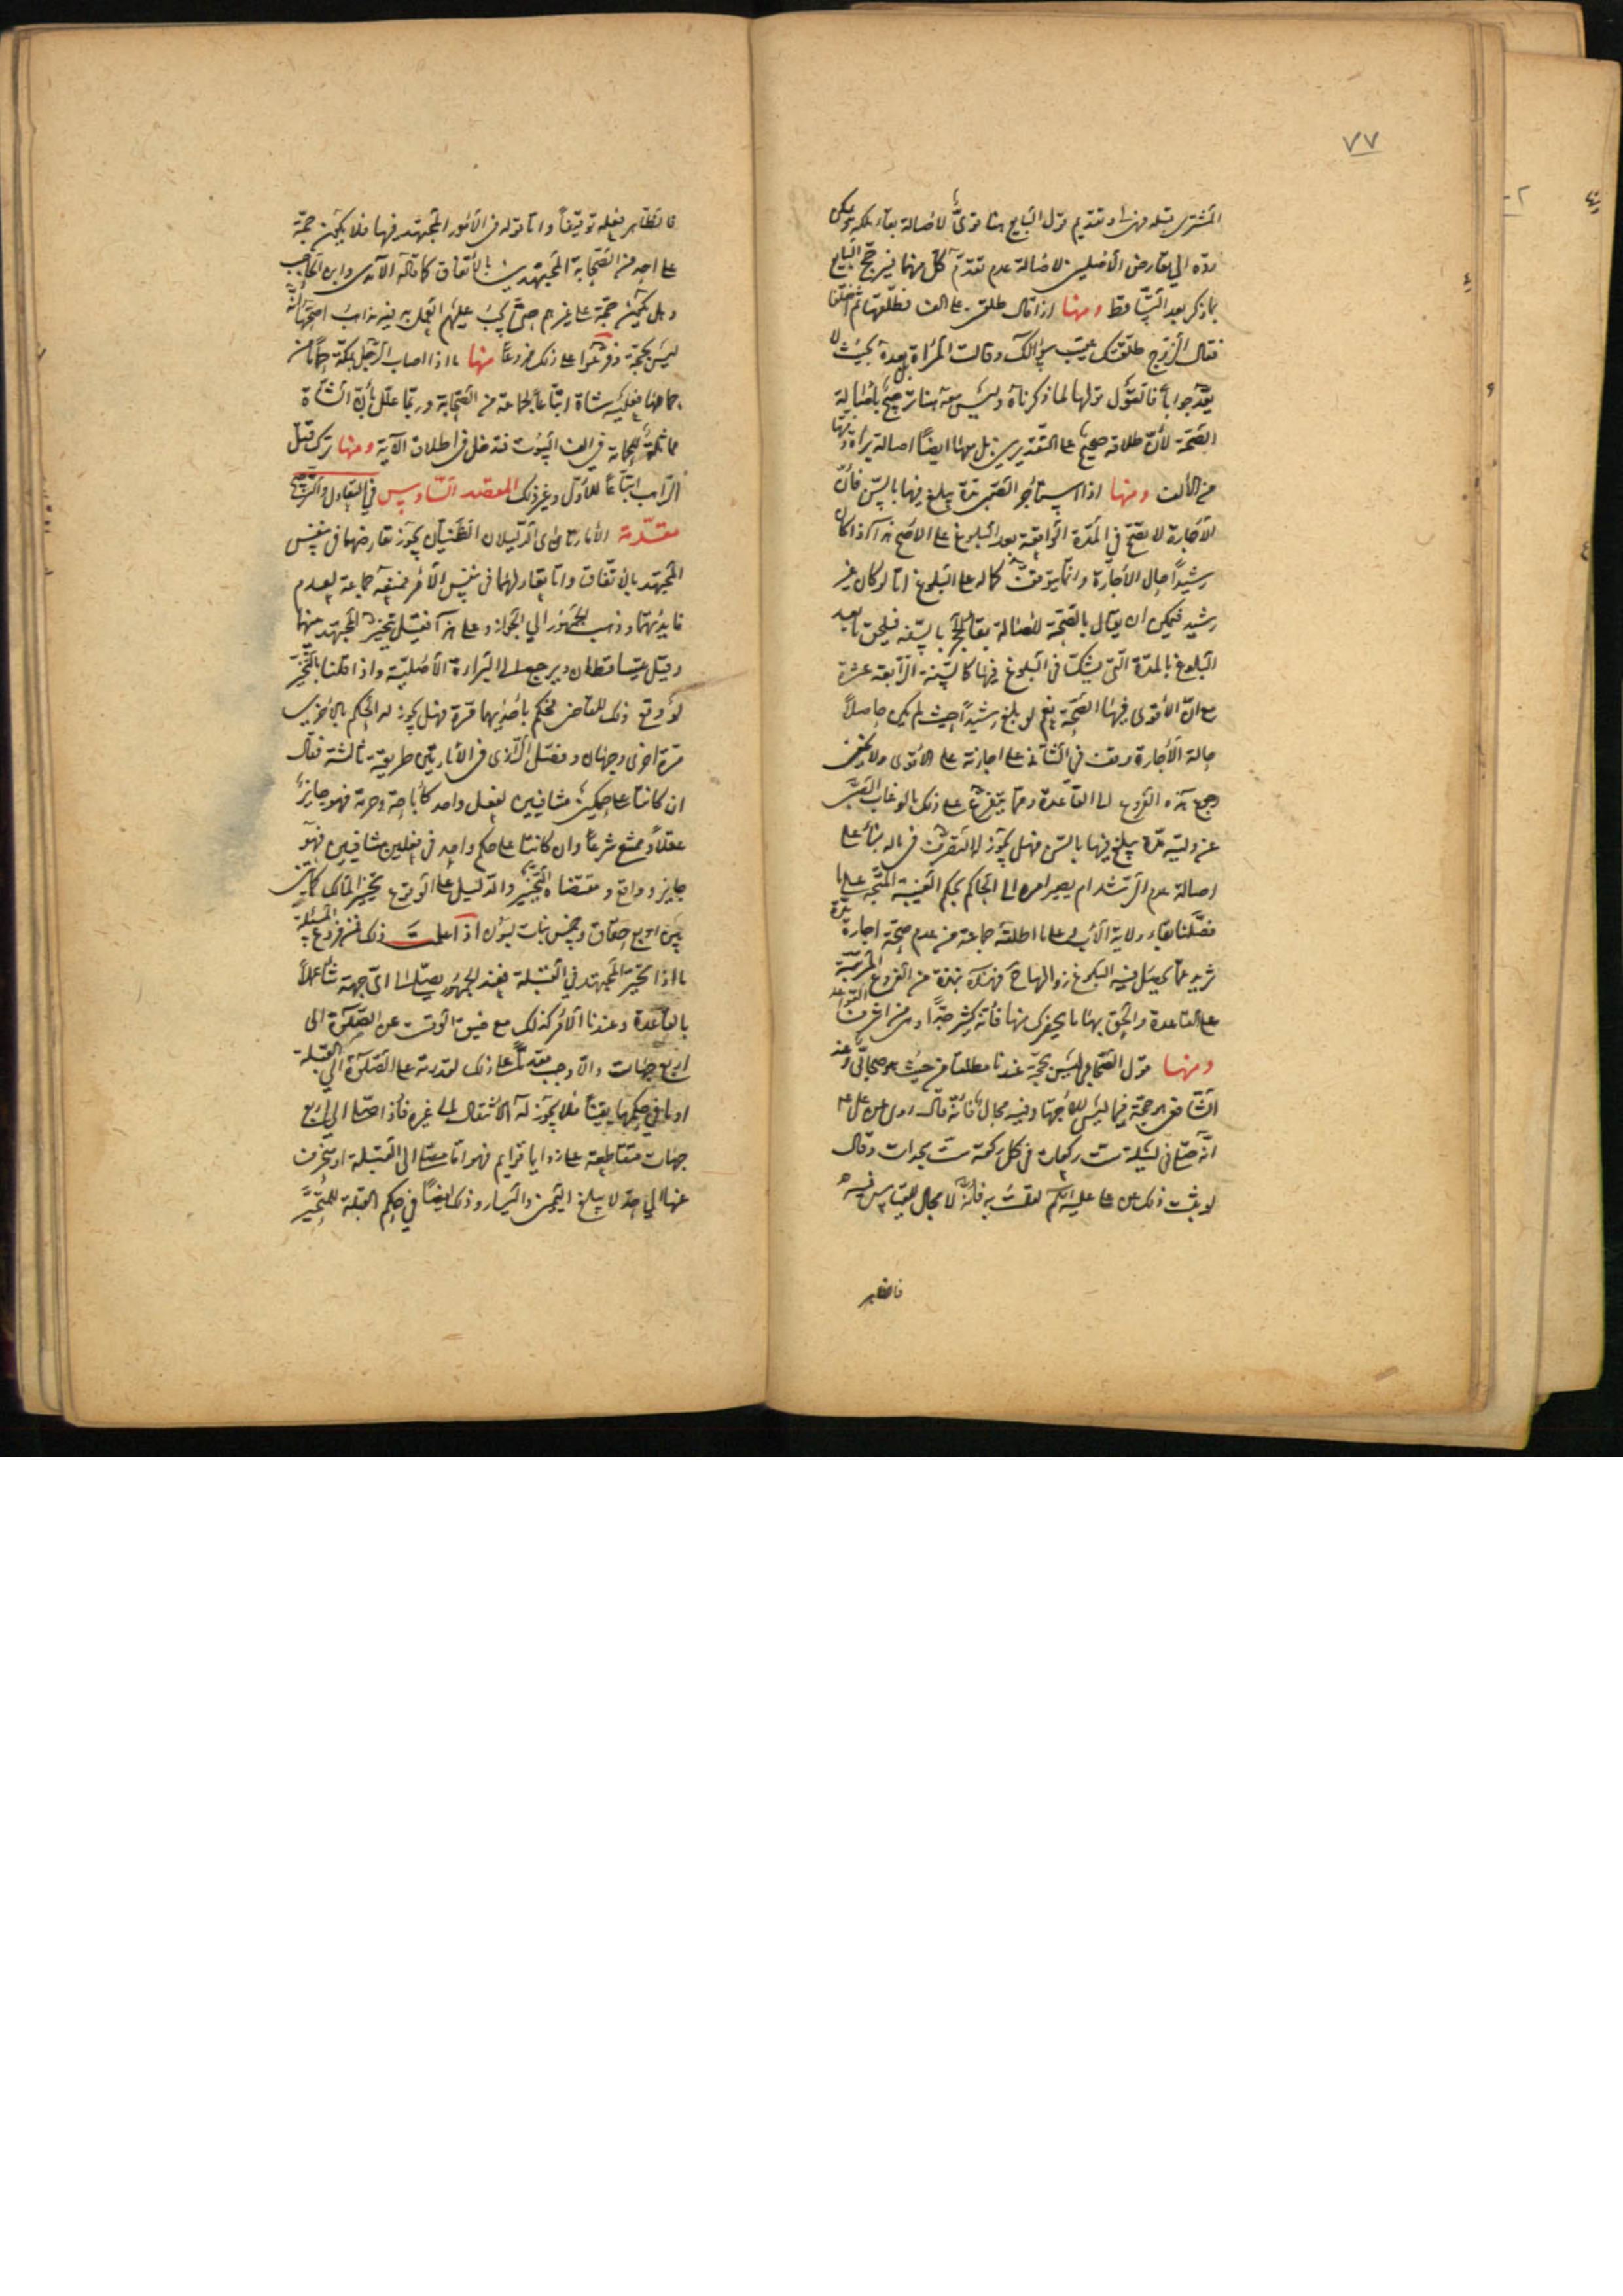 ٧٧
المشتری قبله فهذا وتقديم قول البايع هنا قوىّ لاصالة بقاء ملكه ويمكن
ردّه الى تعارض الأصلين لاصالة عدم تقدّم كلّ منهما فيرجّح البايع
بما ذكر بعد التساقط ومنها اذا قال طلق على الف فطلّقها ثم اختلفا
فقال الزوج طلقتك عقيب سؤالك وقالت المرأة بل بعده بحيث لا
يعدّ جواباً فالقول قولها لما ذكرناه وليس معه هنا ترجيح باصالة
الصحّة لأنّ طلاقه صحيح على التقديرين بل معها ايضاً اصالة براءة ذمّتها
من الألف ومنها اذا استأجر الصبى مدّة يبلغ فيها بالسنّ فأنّ
الأجارة لا تصحّ فى المدّة الواقعة بعد البلوغ على الاصحّ هذا اذا كان
رشيداً حال الأجارة وانما يتوقف كماله على البلوغ اما لو كان غير
رشيد فيمكن ان يقال بالصحّة لاصالة بقاء الحجر بالسفه فيلحق ما بعد
البلوغ بالمدة التى يشكّ فى البلوغ فيها كالسنة الرابعة عشرة
مع انّ الأقوى فيها الصحّة نعم لو بلغ رشيداً حيث لم يكن حاصلاً
حالة الأجارة وقف فى الثانى على اجازته على الأقوى ولا يخفى
رجع هذه الفروع الى القاعدة ومما يتفرّع على ذلك ما لو غاب الصبىّ
عن وليّه مدّة يبلغ فيها بالسنّ فهل يجوز له التصرّف فى ماله بناء على
اصالة عدم الرشد ام يصير امره الى الحاكم بحكم الغيبة المتّجه على ما
فصّلنا بقاء ولاية الأب وعلى ما اطلقه جماعة من عدم صحة اجارة مدّة
تزيد عما يحصل فيه البلوغ زوالها ح فهذه نبذة من الفروع المترتّبة
على القاعدة والحق بها ما يحضرك منها فأنّه كثير جدّاً ومن اشرف القواعد
ومنها قول الصحابى ليس بحجّة عندنا مطلقاً من حيث هو صحابىّ وعند
الشافعى هو حجّة فيما ليس للأجتهاد فيه مجال فانّه قال روى عن علىّ ع
انّه صلّى فى ليلة ستّ ركعات فى كلّ ركعة ستّ سجدات وقال
لو ثبت ذلك عن على عليه السّلم لقلت به فأنّه لا مجال للقياس فيه
فالظاهر
فالظّاهر فعله توقيفاً وامّا قوله فى الأمور المجتهد فيها فلا يكون حجّة
على احد من الصحابة المجتهدين بالأتفاق كما قاله الآمدى وابن الحاجب
وهل يكون حجّة على غيرهم حتّى يجب عليهم العمل به فيه مذاهب اصحّها انّه
ليس بحجّة وفرّعوا على ذلك فروعاً منها ما اذا اصاب الرجل بمكّة حماماً من
حمامها فعليه شاة اتّباعاً لجماعة من الصحابة وربّما علّل بأنّ الشاة
مماثلة للحمامة فى الف البيوت فتدخل فى اطلاق الآية ومنها ترك قتل
الراهب اتباعاً للأوّل وغير ذلك المقصد السّادس فى التعادل والترجيح
مقدّمة الأمارتان اى الدّليلان الظنّيان يجوز تعارضهما فى نفس
المجتهد بالأتّفاق وامّا تعادلهما فى نفس الأمر فمنعه جماعة لعدم
فايدتهما وذهب الجمهور الى الجواز وعلى هذا فقيل بتخير المجتهد منهما
وقيل يتساقطان ويرجع الى البراءة الأصليّة واذا قلنا بالتّخيّر
لو وقع ذلك للقاضى فحكم بأحديهما مرّة فهل يجوز له الحكم بالأخرى
مرّة اخرى وجهان وفصّل الرّازى فى الأمارتين طريقة ثالثة فقال
ان كانتا على حكمين متنافيين لفعل واحد كأباحة وحرمة فهو جايز
عقلاً وممتنع شرعاً وان كانتا على حكم واحد فى فعلين متنافيين فهو
جايز وواقع ومقتضاه التّخيير والدّليل على الوقوع تخيير المالك لمأتين
بين اربع حقاق وخمس بنات لبون اذا علمت ذلك فمن فروع المسئلة
ما اذا تحيّر المجتهد فى القبلة فعند الجمهور يصلّى الى اىّ جهة شاء عملاً
بالقاعدة وعندنا الأمر كذلك مع ضيق الوقت عن الصّلوة الى
اربع جهات والّا وجب مقدّماً على ذلك لقدرته على الصّلوة الى القبلة
او ما فى حكمها يقيناً فلا يجوز له الأنتقال الى غيره فأذا صلّى الى اربع
جهات متقاطعة على زوايا قوايم فهو امّا مصلّ الى القبلة او منحرف
عنها الى حدّ لا يبلغ اليمين واليسار وذلك ايضاً فى حكم القبلة للمتحيّر